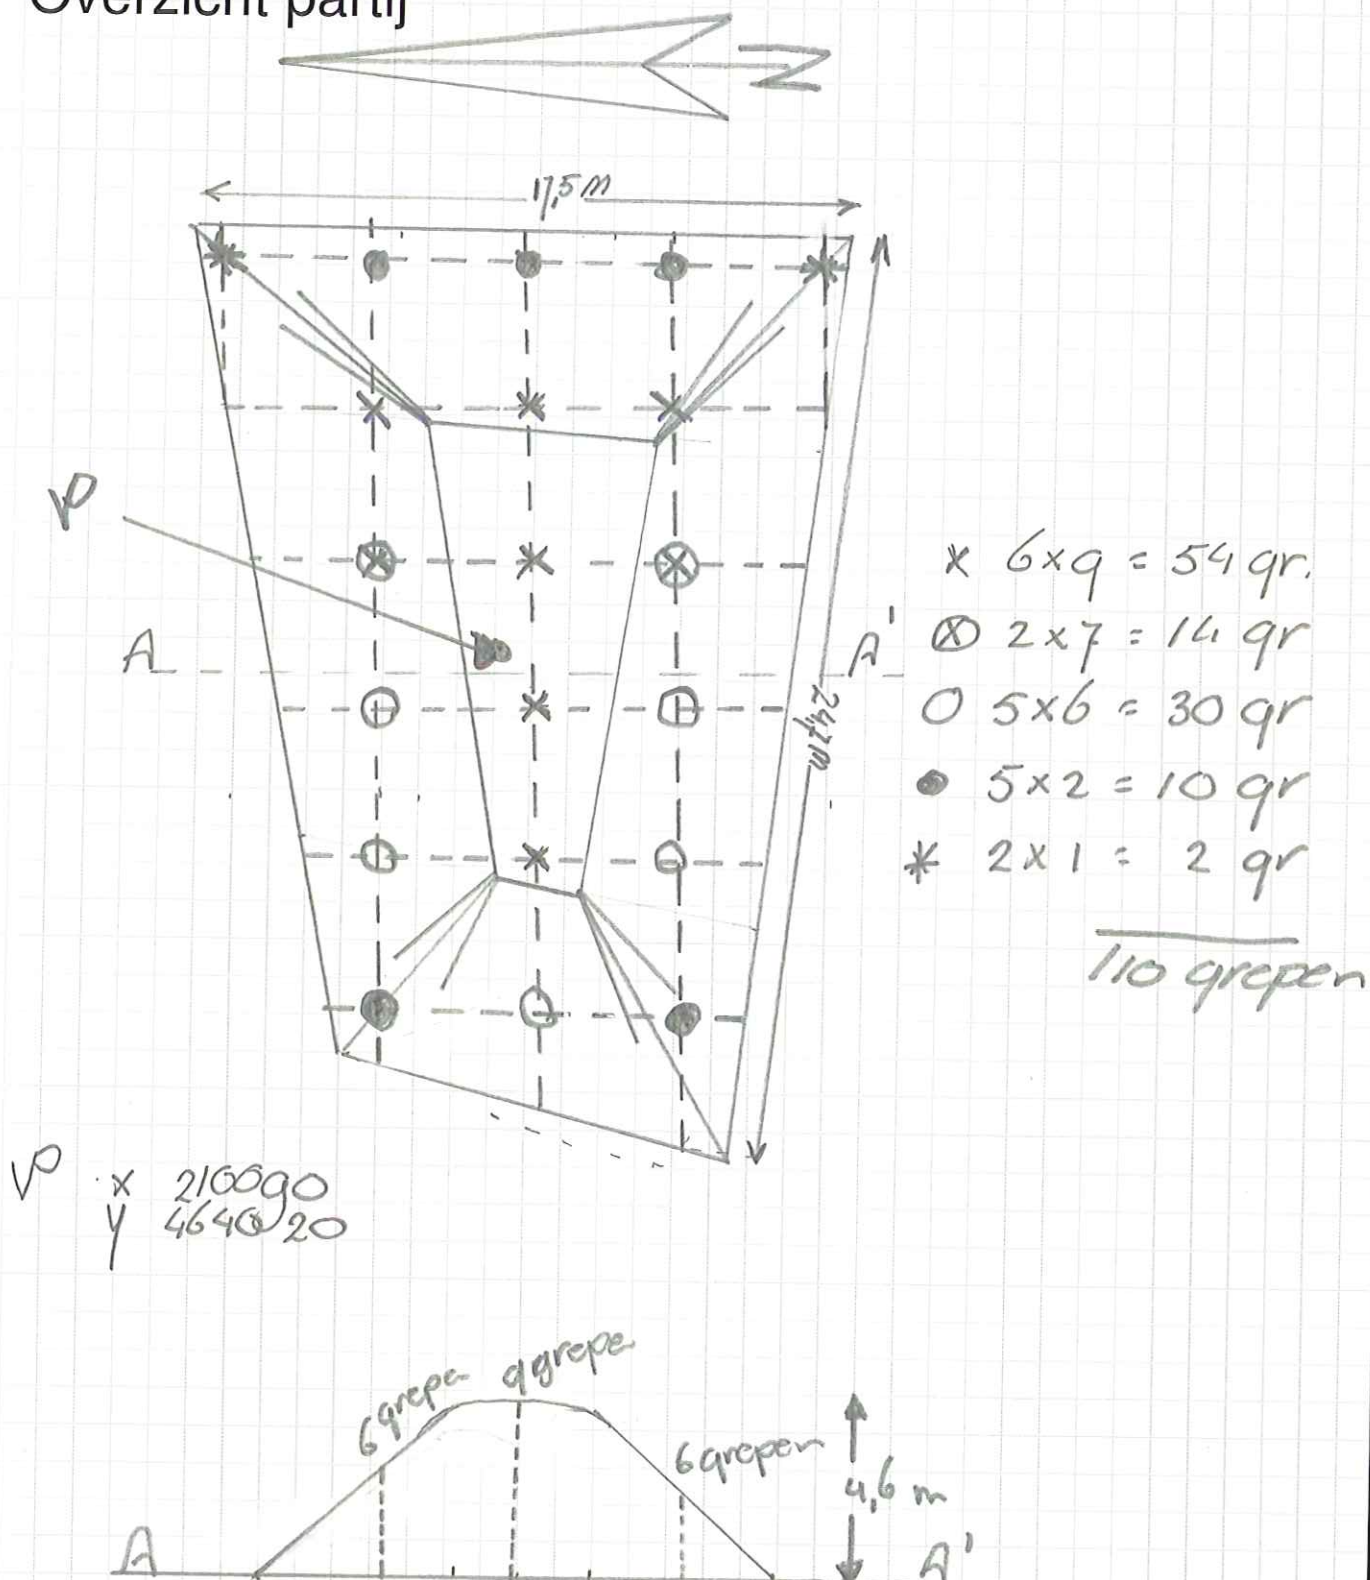 Overzicht partij
N
17,5 m
VP
A A'
24,7 m
x 6x9 = 54 gr.
⊗ 2x7 = 14 gr
O 5x6 = 30 gr
● 5x2 = 10 gr
* 2x1 = 2 gr
110 grepen
VP x 210090
y 464020
6 grepen 9 grepen
6 grepen
4,6 m
A A'